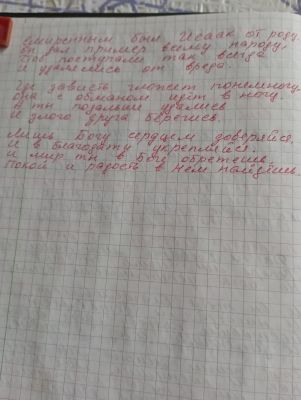 Смиренным был Исаак от роду.
Он дал пример всему народу,
Чтоб поступали так всегда
И удалялись от вреда.
Где зависть гложет понемногу
Она с обманом идёт в ногу.
И ты подальше удались
И злого друга берегись.
Лишь Богу сердцем доверяйся,
И в благодати укрепляйся.
И мир ты в Боге обретёшь
Покой и радость в Нём найдёшь.